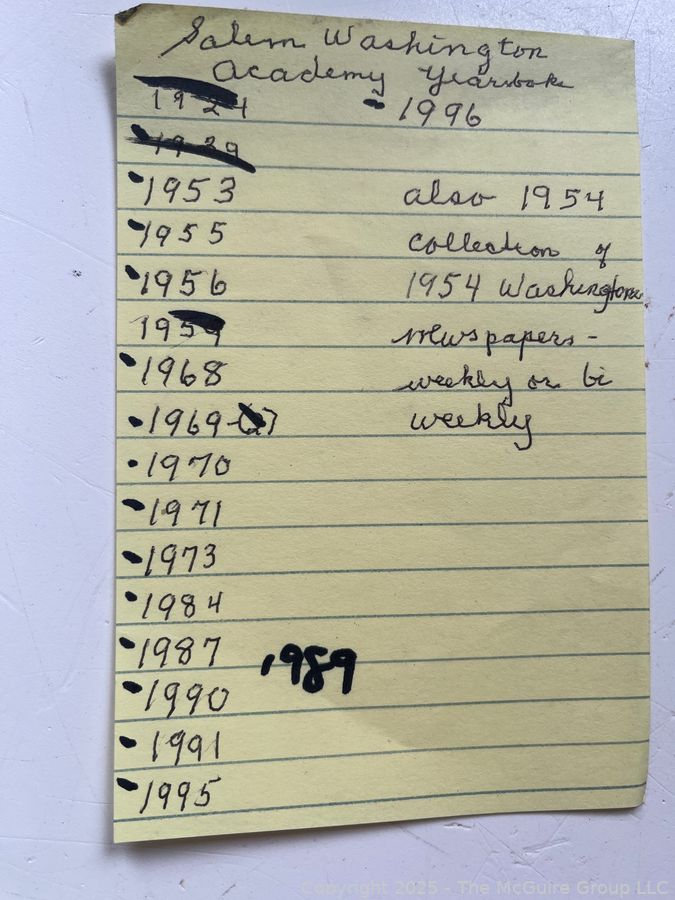 Salem Washington
Academy Yearbook
1924
• 1996
• 1939
• 1953
also 1954
• 1955
collection of
• 1956
1954 Washington
1959
newspapers -
• 1968
weekly or bi
• 1969
weekly
• 1970
• 1971
• 1973
• 1984
• 1987
1989
• 1990
• 1991
• 1995
Copyright 2025 - The McGuire Group LLC